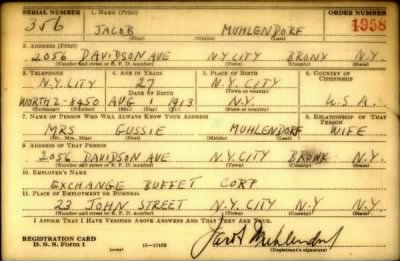 SERIAL NUMBER 1. NAME (Print) ORDER NUMBER
356 JACOB MUHLENDORF 1958
(First) (Middle) (Last)
2. ADDRESS (Print)
2056 DAVIDSON AVE N.Y.CITY BRONX N.Y.
(Number and street or R. F. D. number) (Town) (County) (State)
3. TELEPHONE 4. AGE IN YEARS 5. PLACE OF BIRTH 6. COUNTRY OF CITIZENSHIP
N.Y.CITY 27 N.Y. CITY
DATE OF BIRTH
WORTH 2-8450 AUG 1 1913 N.Y. U.S.A.
(Exchange) (Number) (Mo.) (Day) (Yr.) (State or country)
7. NAME OF PERSON WHO WILL ALWAYS KNOW YOUR ADDRESS 8. RELATIONSHIP OF THAT PERSON
MRS GUSSIE MUHLENDORF WIFE
(Mr., Mrs., Miss) (First) (Middle) (Last)
9. ADDRESS OF THAT PERSON
2056 DAVIDSON AVE N.Y.CITY BRONX N.Y.
(Number and street or R. F. D. number) (Town) (County) (State)
10. EMPLOYER'S NAME
EXCHANGE BUFFET CORP
11. PLACE OF EMPLOYMENT OR BUSINESS
23 JOHN STREET N.Y. CITY N.Y N.Y.
(Number and street or R. F. D. number) (Town) (County) (State)
I AFFIRM THAT I HAVE VERIFIED ABOVE ANSWERS AND THAT THEY ARE TRUE.
REGISTRATION CARD Jacob Muhlendorf
D. S. S. Form 1 (over) 16—17105 (Registrant's signature)